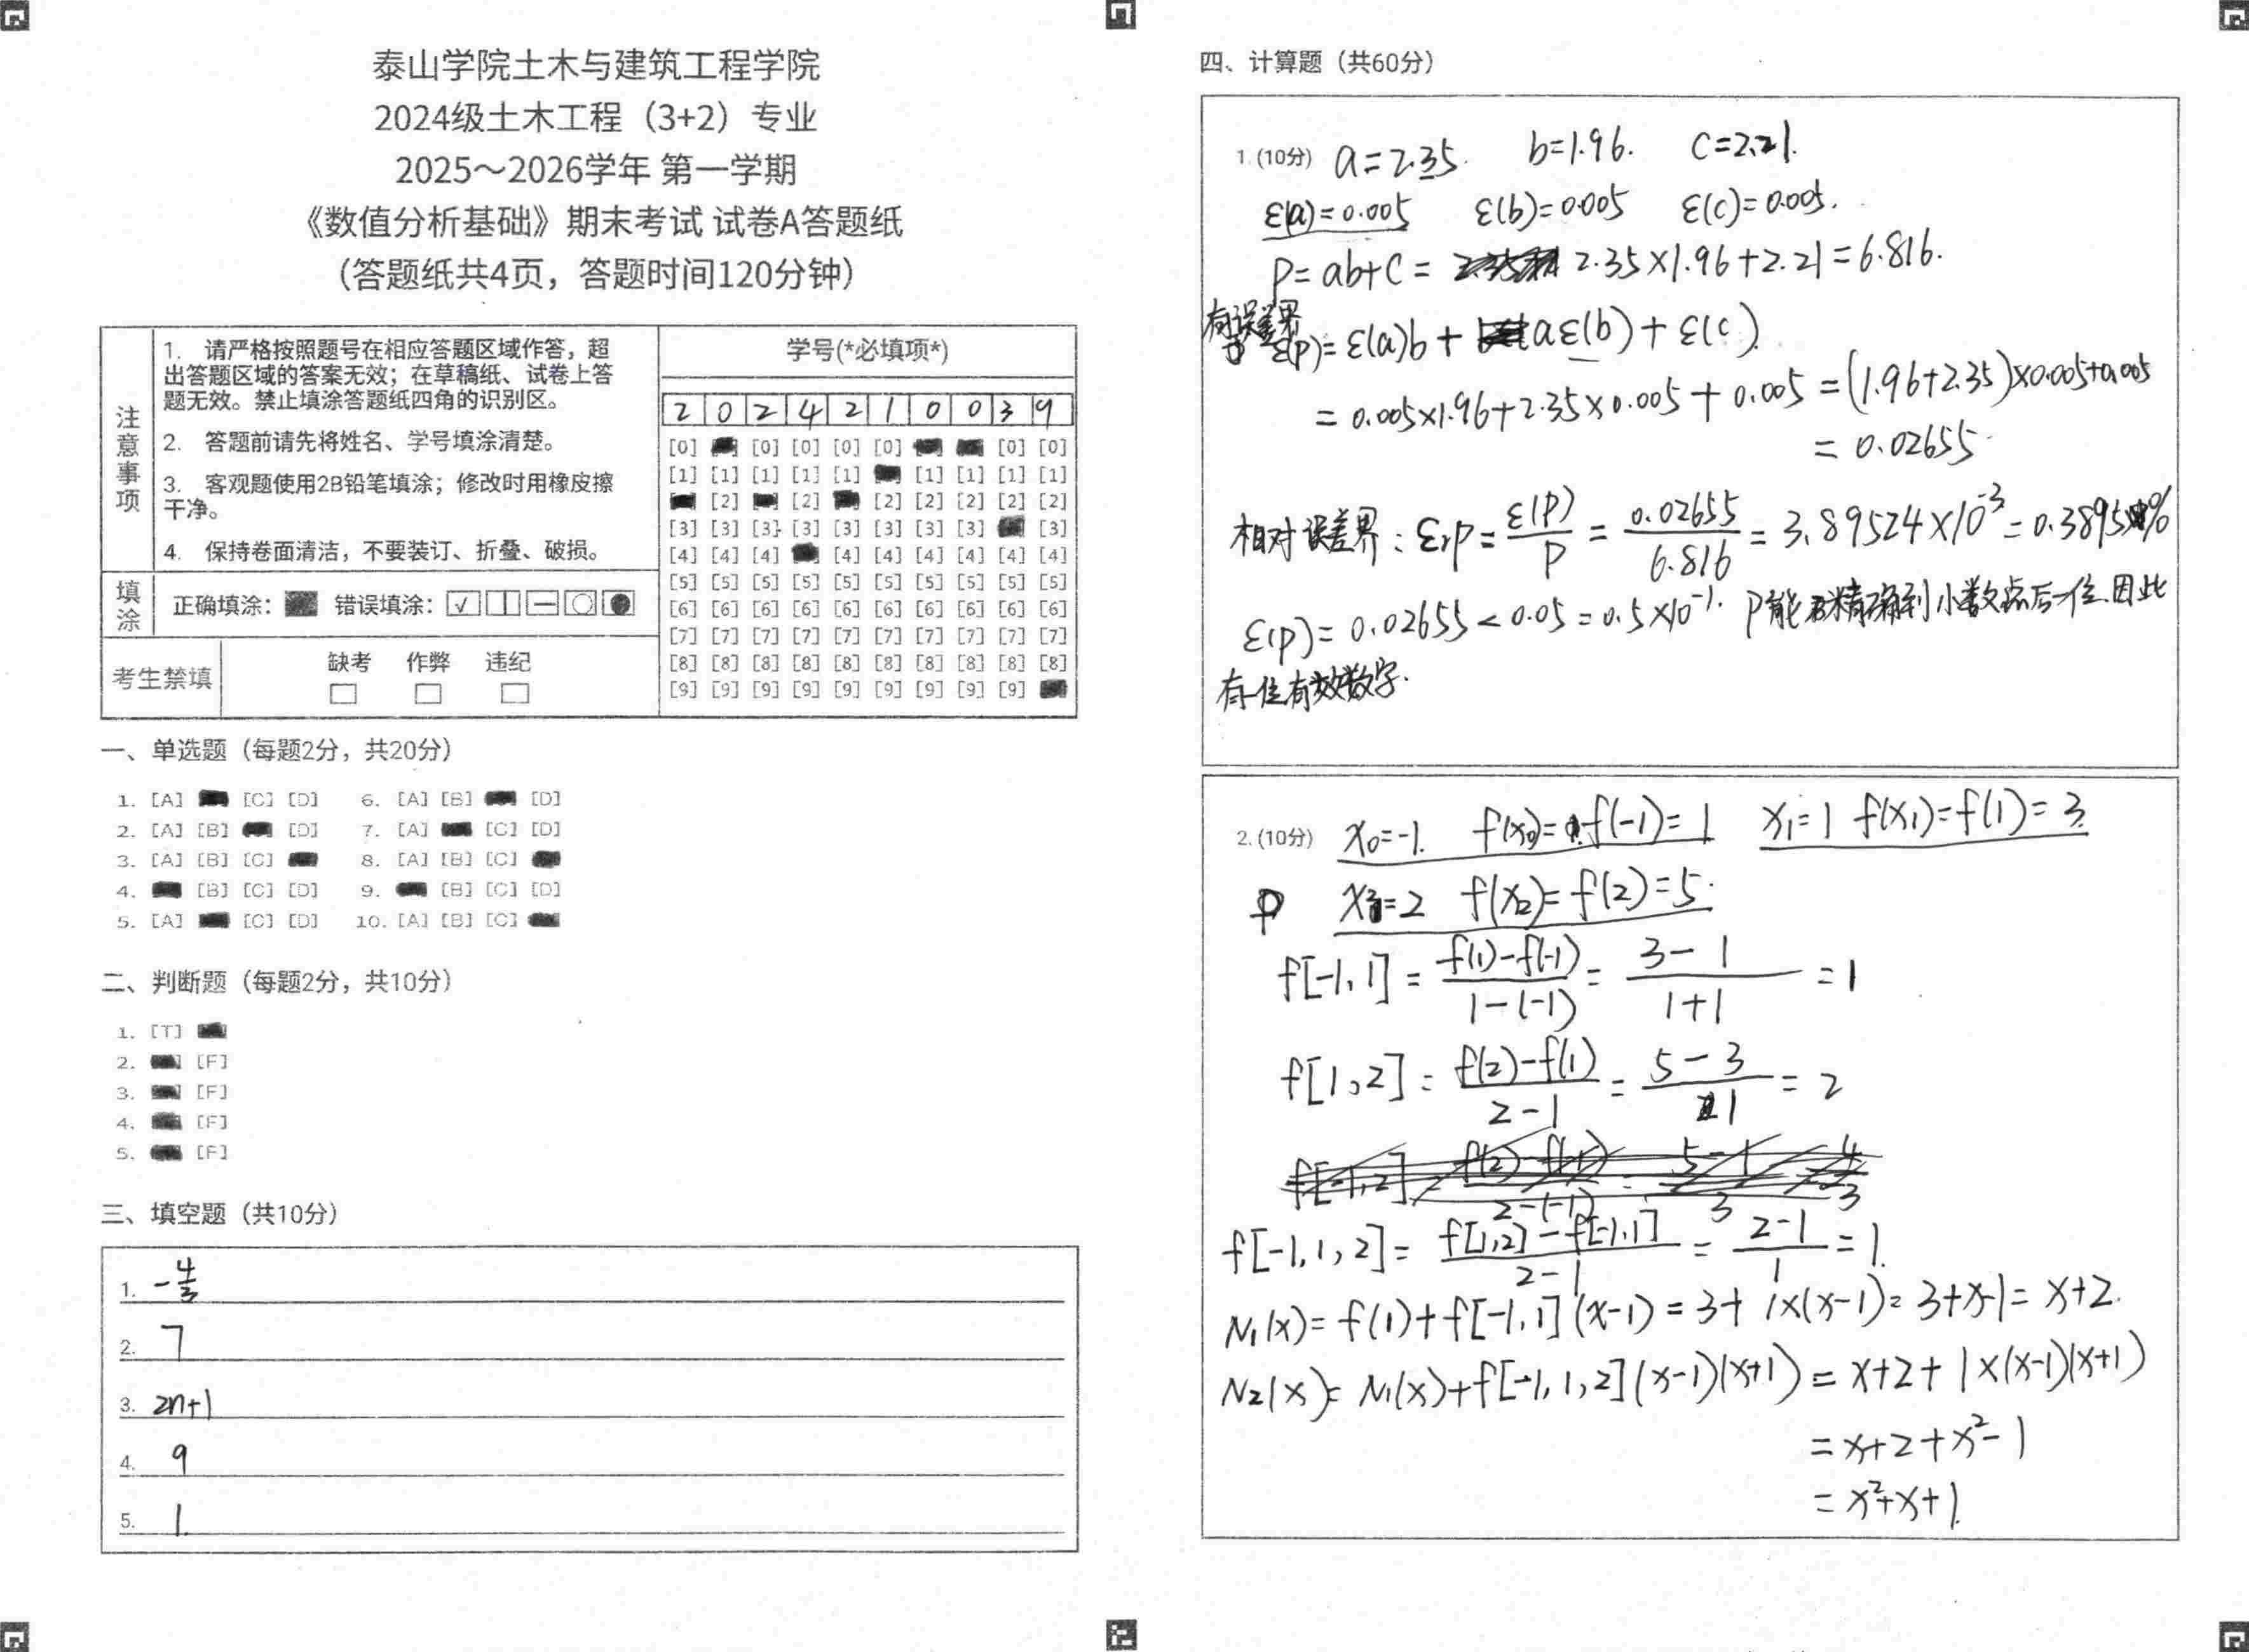 泰山学院土木与建筑工程学院
2024级土木工程（3+2）专业
2025～2026学年 第一学期
《数值分析基础》期末考试 试卷A答题纸
（答题纸共4页，答题时间120分钟）
注意事项
1. 请严格按照题号在相应答题区域作答，超
出答题区域的答案无效；在草稿纸、试卷上答
题无效。禁止填涂答题纸四角的识别区。
2. 答题前请先将姓名、学号填涂清楚。
3. 客观题使用2B铅笔填涂；修改时用橡皮擦
干净。
4. 保持卷面清洁，不要装订、折叠、破损。
填涂 正确填涂： 错误填涂：
考生禁填 缺考 作弊 违纪
学号(*必填项*)
2 0 2 4 2 1 0 0 3 9
[0] [0] [0] [0] [0] [0] [0]
[1] [1] [1] [1] [1] [1] [1] [1] [1]
[2] [2] [2] [2] [2] [2] [2]
[3] [3] [3] [3] [3] [3] [3] [3] [3]
[4] [4] [4] [4] [4] [4] [4] [4] [4]
[5] [5] [5] [5] [5] [5] [5] [5] [5] [5]
[6] [6] [6] [6] [6] [6] [6] [6] [6] [6]
[7] [7] [7] [7] [7] [7] [7] [7] [7] [7]
[8] [8] [8] [8] [8] [8] [8] [8] [8] [8]
[9] [9] [9] [9] [9] [9] [9] [9] [9]
一、单选题（每题2分，共20分）
1. [A] [C] [D] 6. [A] [B] [D]
2. [A] [B] [D] 7. [A] [C] [D]
3. [A] [B] [C] 8. [A] [B] [C]
4. [B] [C] [D] 9. [B] [C] [D]
5. [A] [C] [D] 10. [A] [B] [C]
二、判断题（每题2分，共10分）
1. [T]
2. [F]
3. [F]
4. [F]
5. [F]
三、填空题（共10分）
1. -4/3
2. 7
3. 2n+1
4. 9
5. 1
四、计算题（共60分）
1. (10分) a=2.35. b=1.96. c=2.21.
ε(a)=0.005 ε(b)=0.005 ε(c)=0.005.
P=ab+c= 2.35×1.96+2.21=6.816.
误差界
ε(p)=ε(a)b+aε(b)+ε(c)
=0.005×1.96+2.35×0.005+0.005=(1.96+2.35)×0.005+0.005
=0.02655.
相对误差界：εrp=ε(p)/p=0.02655/6.816=3.89524×10⁻³=0.3895%
ε(p)=0.02655<0.05=0.5×10⁻¹. P能精确到小数点后一位.因此
有一位有效数字.
2. (10分) x₀=-1. f(x₀)=f(-1)=1 x₁=1 f(x₁)=f(1)=3.
x₂=2 f(x₂)=f(2)=5.
f[-1,1]=(f(1)-f(-1))/(1-(-1))=(3-1)/(1+1)=1
f[1,2]=(f(2)-f(1))/(2-1)=(5-3)/1=2
f[-1,1,2]=(f[1,2]-f[-1,1])/(2-1)=(2-1)/1=1.
N₁(x)=f(1)+f[-1,1](x-1)=3+1×(x-1)=3+x-1=x+2.
N₂(x)=N₁(x)+f[-1,1,2](x-1)(x+1)=x+2+1×(x-1)(x+1)
=x+2+x²-1
=x²+x+1.